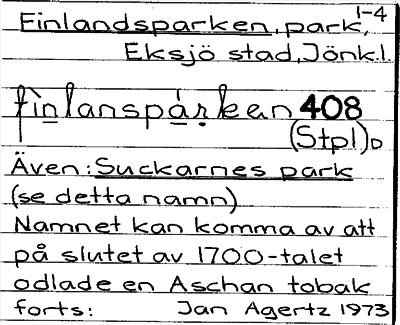 1-4
Finlandsparken, park,
Eksjö stad, Jönk.l.
fìnlanspárkean 408
(Stpl)D
Även: Suckarnes park
(se detta namn)
Namnet kan komma av att
på slutet av 1700-talet
odlade en Aschan tobak
forts: Jan Agertz 1973